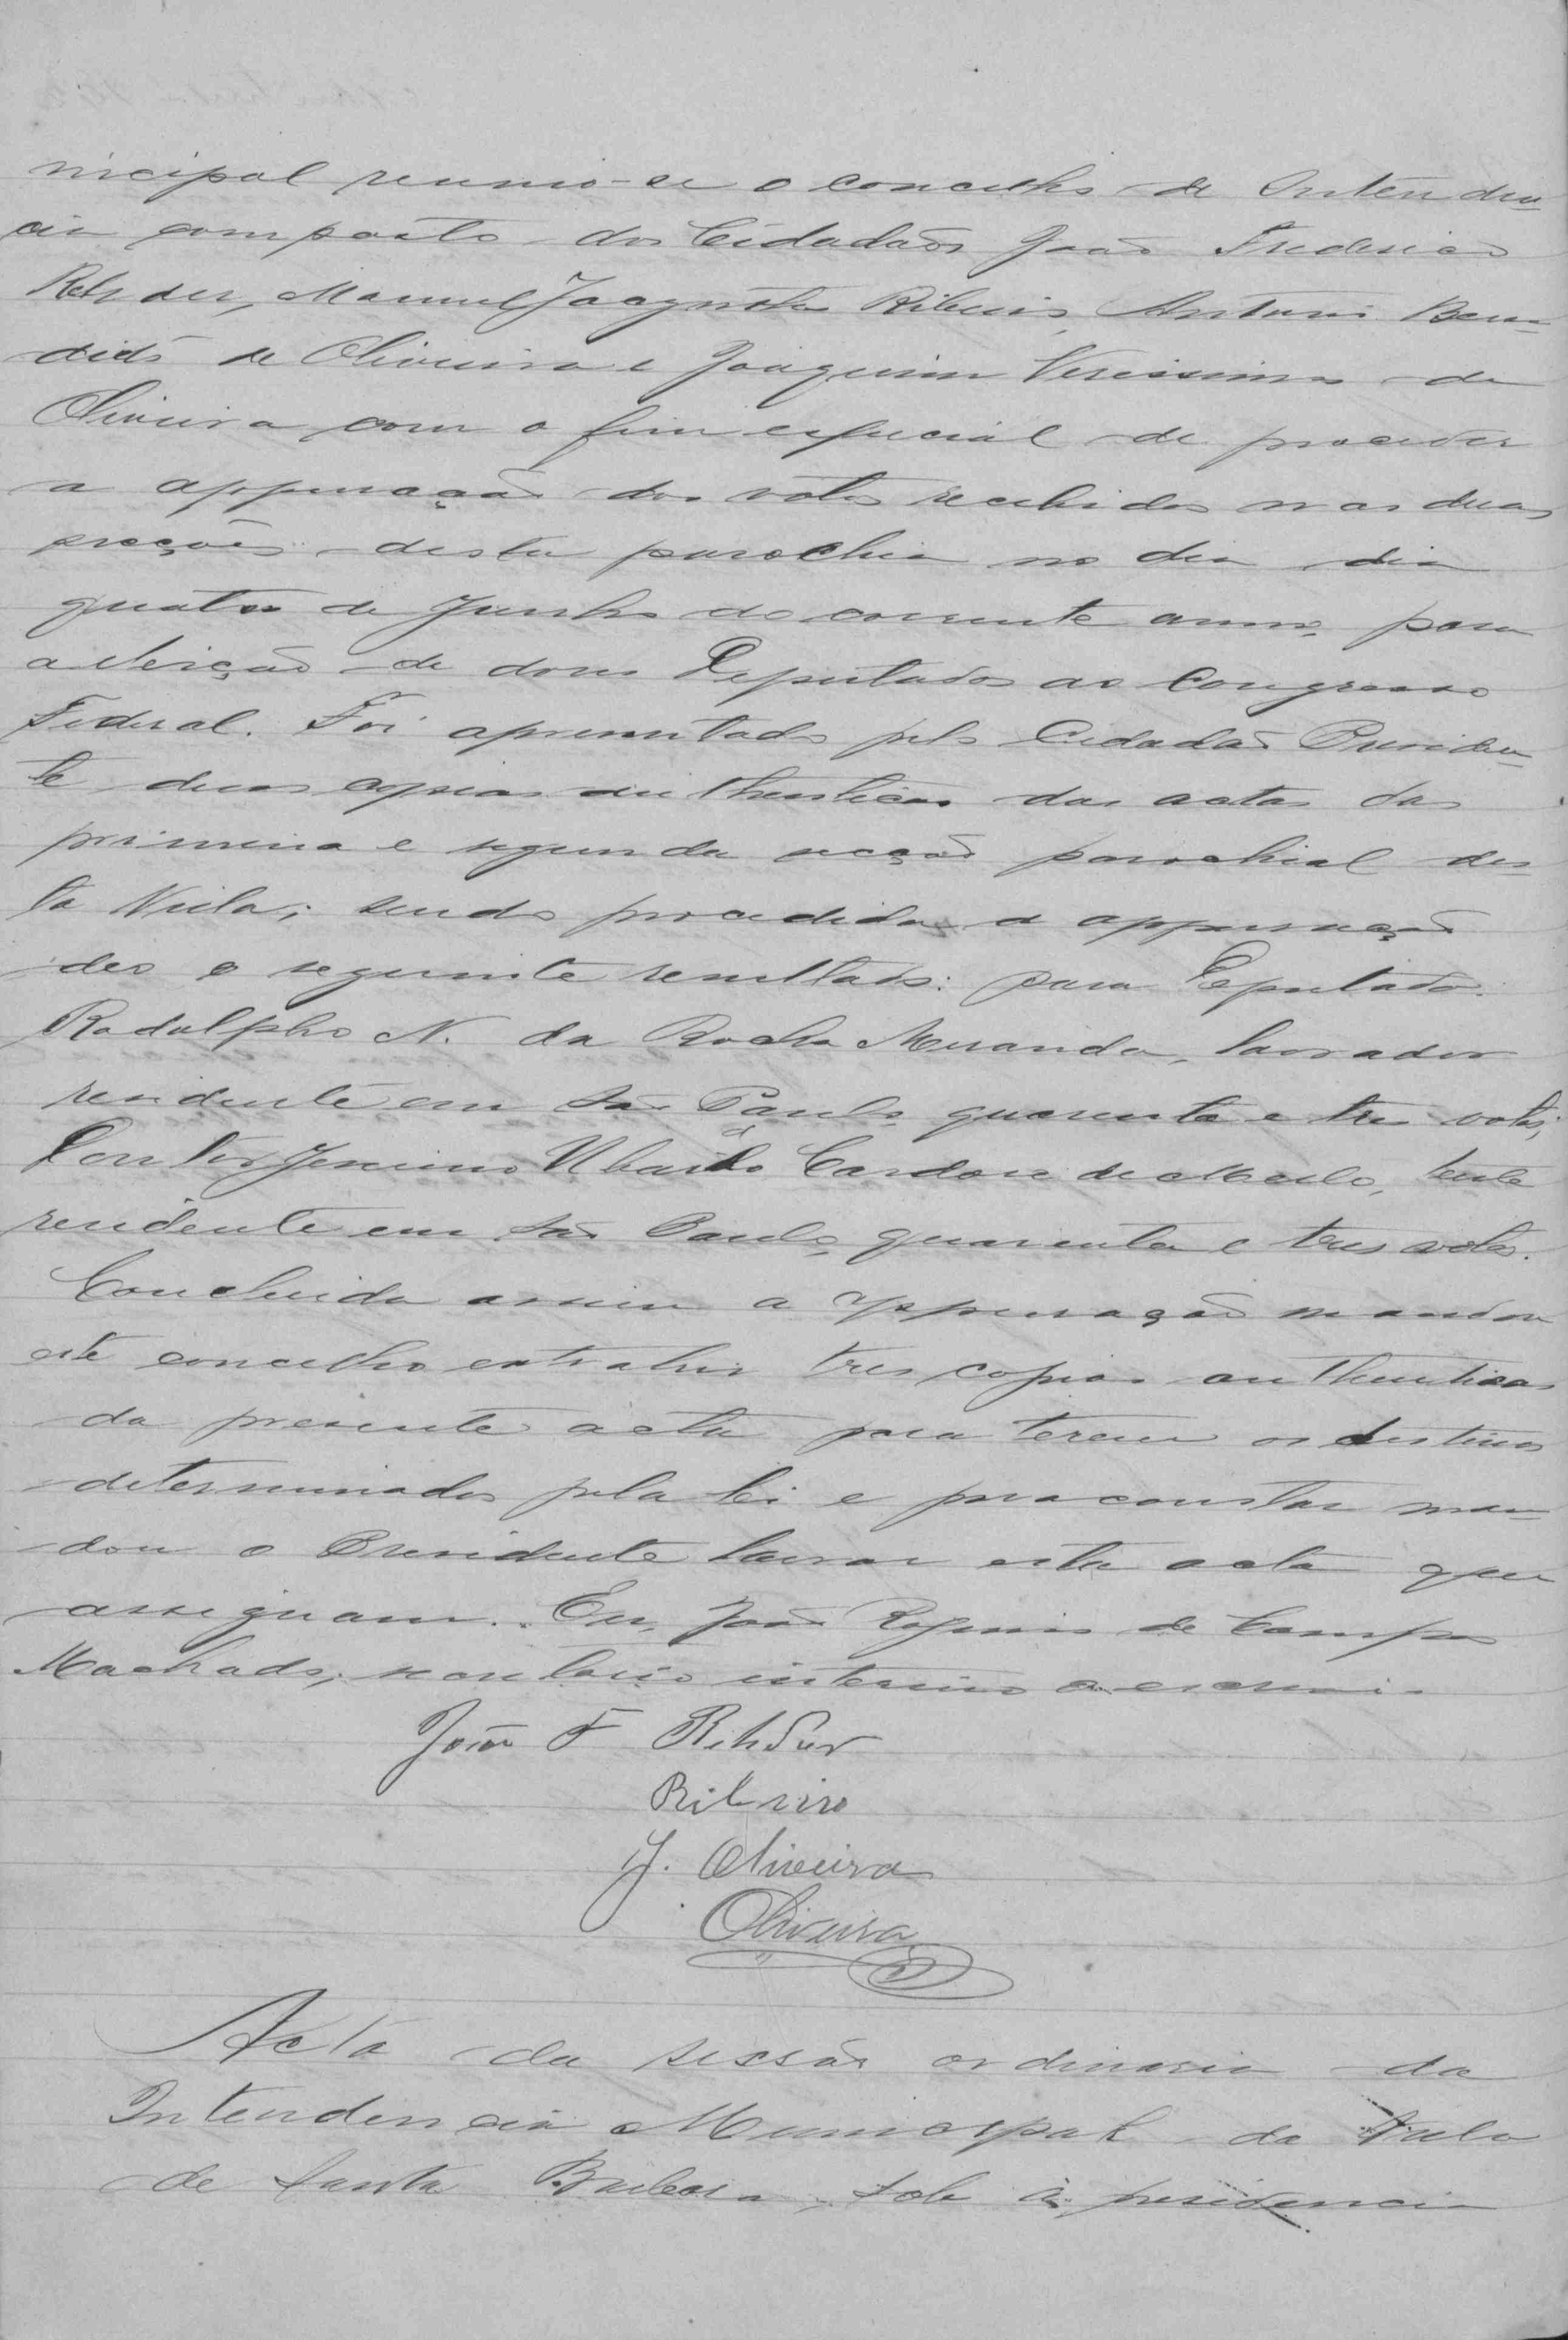 nicipal reunio-se o concelho de Intenden
cia composto dos Cidadãos João Frederico
Rehder, Manuel Joaquim Ribeiro, Antonio Bene
dicto de Oliveira e Joaquim Verissimo de
Oliveira com o fim especial de proceder
a appuração dos votos recebidos nas duas
secções desta parochia no dia dia
quatro de Junho do corrente anno, para
a eleição de dous Deputados ao Congresso
Federal. Foi apresentado pelo Cidadão Presiden
te duas copias authenticas das actas da
primeira e segunda secção parochial des
ta Villa; sendo procedida a appuração
deo o seguinte resultado: para Deputado:
Rodolpho N. da Rocha Miranda, lavrador
residente em São Paulo quarenta e tres votos;
Doutor Jesuino Ubaldo Cardoso de Mello, lente
residente em São Paulo, quarenta e tres votos.
Concluida assim a appuração mandou
este concelho extrahir tres copias authenticas
da presente acta para terem os destinos
determinados pela lei e para constar man
dou o Presidente lavrar esta acta que
assignam. Eu, João de Campos
Machado, interino o escrevi
João F Rehder
Ribeiro
J. Oliveira
Oliveira
Acta da sessão ordinaria da
Intendencia Municipal da Villa
de Santa Barbara, sob a presidencia